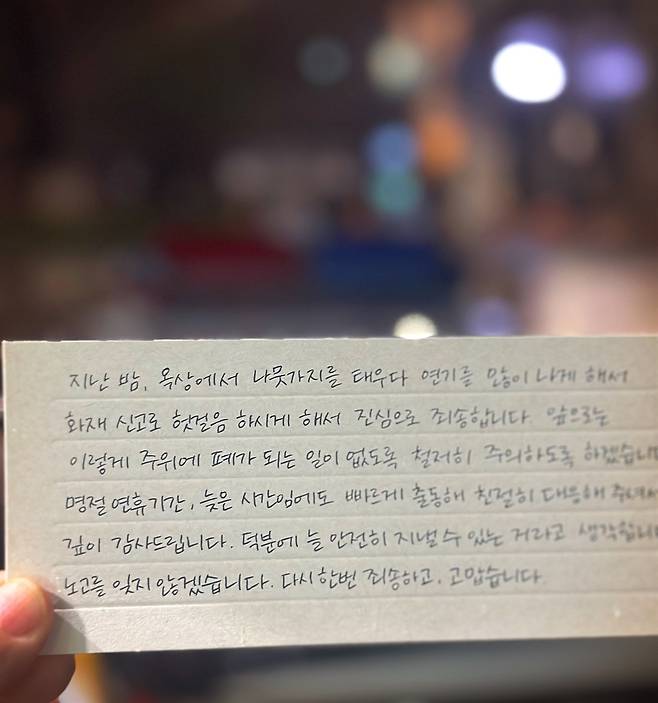 지난 밤, 옥상에서 나뭇가지를 태우다 연기를 많이 나게 해서
화재 신고로 헛걸음 하시게 해서 진심으로 죄송합니다. 앞으로는
이렇게 주위에 폐가 되는 일이 없도록 철저히 주의하도록 하겠습니
명절 연휴기간, 늦은 시간임에도 빠르게 출동해 친절히 대응해 주셔서
깊이 감사드립니다. 덕분에 늘 안전히 지낼 수 있는 거라고 생각합니
노고를 잊지 않겠습니다. 다시 한번 죄송하고, 고맙습니다